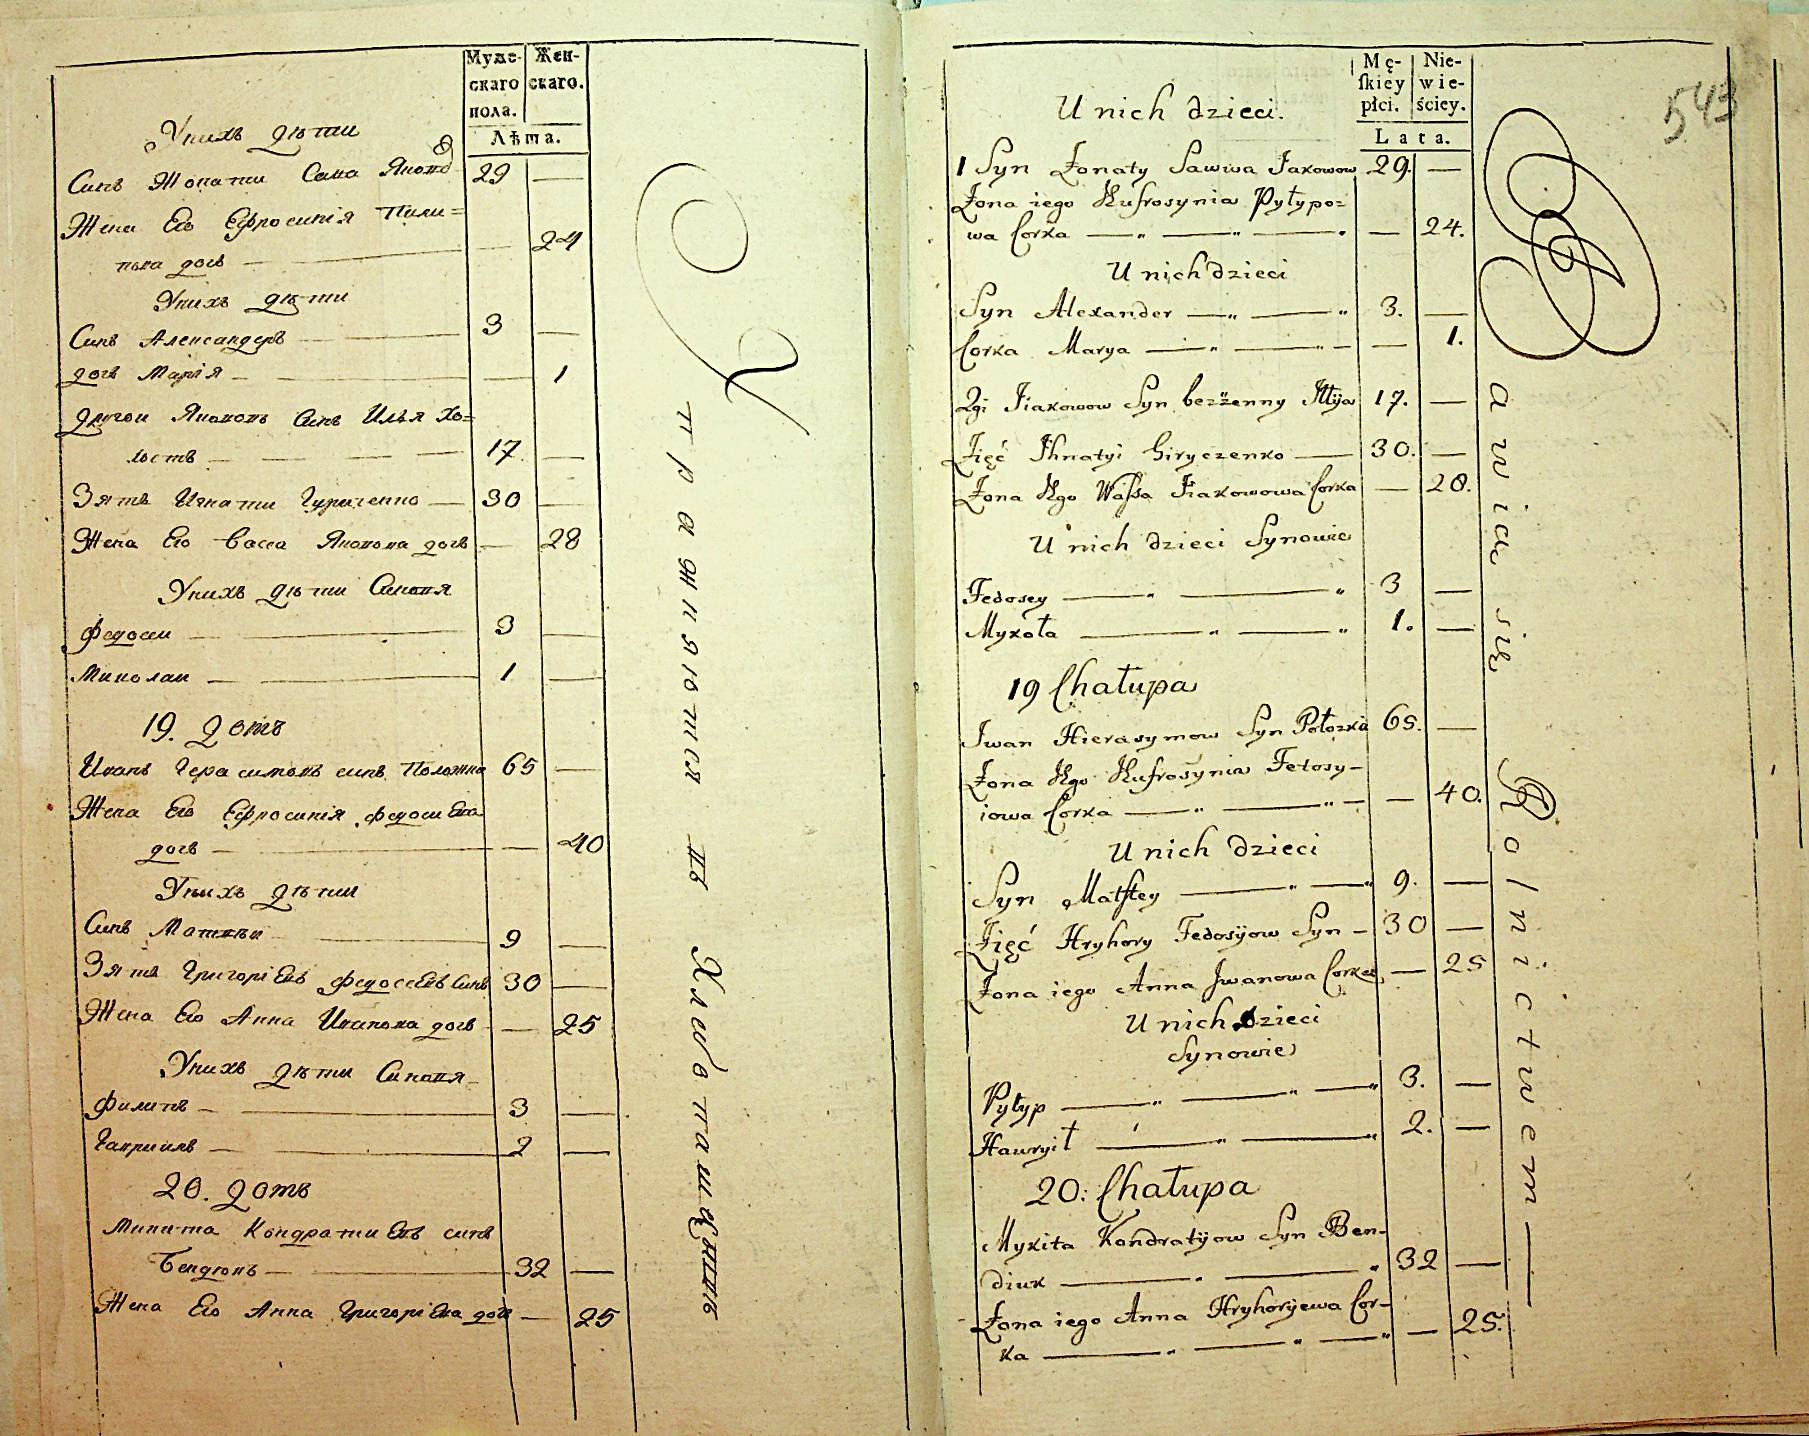 Муже-
скаго
пола.
Жен-
скаго.
Лѣта.
Унихъ дѣти
Синъ Жонати Сава Яковъ 29 —
Жена Его Ефросинія Пили=
пова дочь — — 24
Унихъ дѣти
Синъ Александеръ — 3 —
дочь Марія — — 1
Другои Яковопъ Синъ Илья Хо=
лостъ — — — 17 —
Зять Игнати Гуриченко — 30 —
Жена Его Васса Якопова дочь — 28
Унихъ дѣти Синопя
Федоси — 3 —
Миколаи — — 1 —
19. Домъ
Иванъ Герасимопъ синъ Положка 65 —
Жена Его Ефросинія Федоси Ева
дочь — — 40
Унихъ дѣти
Синъ Матпѣи — 9 —
Зять Григорі Евъ Федосе Евъ Синъ 30 —
Жена Его Анна Иванова дочь — 25
Унихъ дѣти Синопя
Филипъ — 3 —
Гаприилъ — 2 —
20. Домъ
Микита Кондрати Евъ синъ
Бендюкъ — 32 —
Жена Его Анна Григорі Ева дочь — 25
пражняются пъ Хлебопашцstвѣ
543
Mę-
skiey
płci.
Nie-
wie-
ściey.
Lata.
U nich dzieci.
1 Syn Żonaty Sawwa Jakowow 29. —
Żona iego Eufrosynia Pyłypo=
wa Corka — „ — „ — „ — 24.
U nich dzieci
Syn Alexander — „ — „ 3. —
Corka Marya — „ — „ — — 1.
2gi Jiakowow Syn bezżenny Illija 17. —
Zięć Ihnatyi Giryczenko — 30. —
Żona Ego Wassa Jiakowowa Corka — 28.
U nich dzieci Synowie
Fedosey — „ — „ 3 —
Mykoła — „ — „ 1. —
19 Chałupa
Jwan Hierasymow Syn Połozka 65. —
Żona Ego Eufrosynia Fetosy-
iowa Corka — „ — „ — — 40.
U nich dzieci
Syn Matftey — „ — „ 9. —
Zięć Hryhory Fedosyow Syn — 30 —
Żona iego Anna Jwanowa Corka — 25
U nich dzieci
Synowie
Pyłyp — „ — „ — „ 3. —
Hawryił — „ — „ 2. —
20. Chałupa
Mykita Kondratyow Syn Ben-
diuk — „ — „ 32 —
Żona iego Anna Hryhoryewa Cor-
ka — „ — „ — „ — 25.
awia się Rolnictwem —